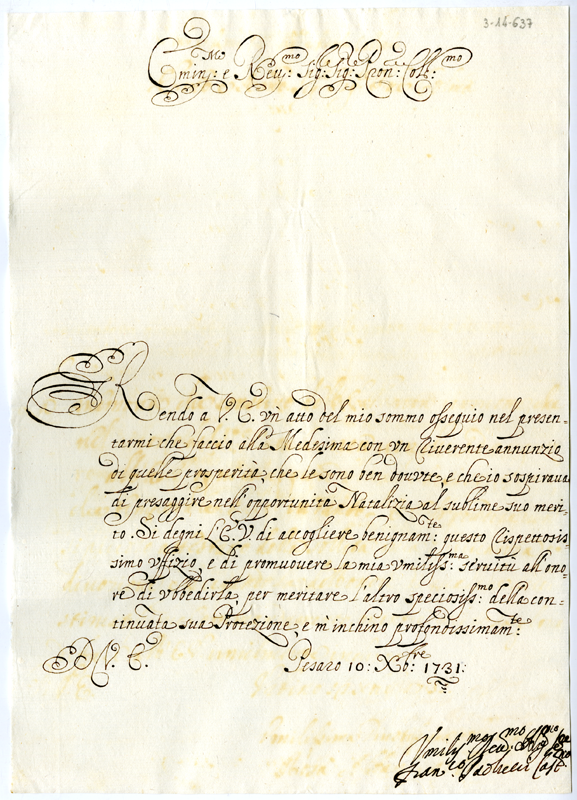 3-14-637
Emin:mo e Reu:mo Sig: Sig: Pron: Coll:mo
Rendo à V. E. vn atto del mio sommo ossequio nel presen-
tarmi che faccio alla Medesima con vn riuerente annunzio
di quelle prosperità, che le sono ben douute, e che io sospiraua
di presaggire nell'opportunità Natalizia al sublime suo meri-
to. Si degni l'E. V. di accogliere benignam:te questo rispettosis-
simo vffizio, e di promuouere la mia vmiliss:ma seruitù all'ono-
re di vbbedirla, per meritare l'altro speciosiss:mo della con-
tinuata sua Protezione, e m'inchino profondissimam:te
D. V. E. Pesaro 10: Xb:re 1731:
Vmilis:mo
Fran:co